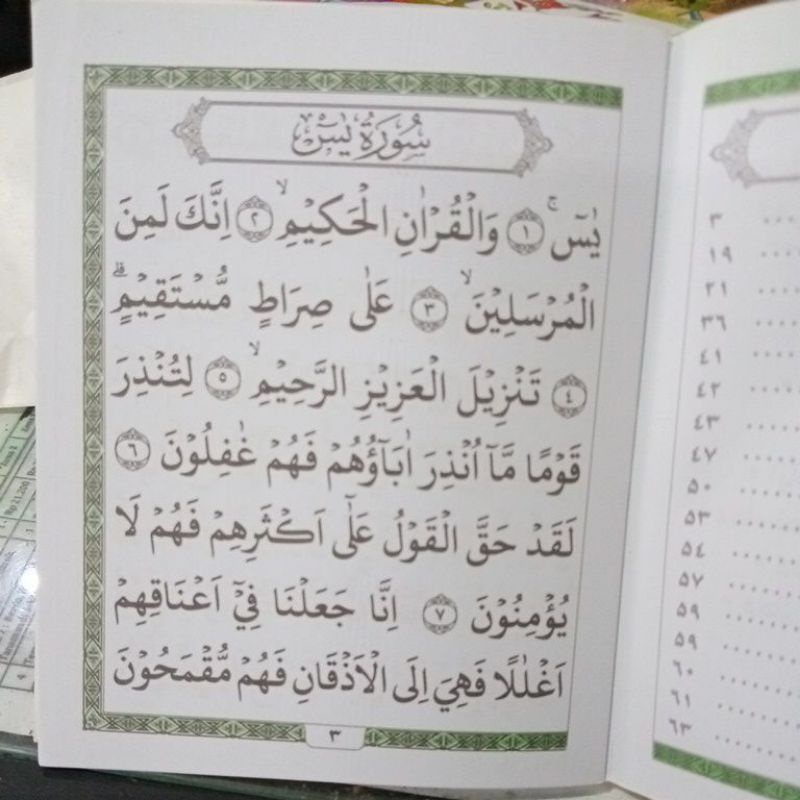 سُوْرَةُ يٰسٓ
يٰسٓ ۚ ﴿١﴾ وَالْقُرْاٰنِ الْحَكِيْمِۙ ﴿٢﴾ اِنَّكَ لَمِنَ
الْمُرْسَلِيْنَۙ ﴿٣﴾ عَلٰى صِرَاطٍ مُّسْتَقِيْمٍۗ
﴿٤﴾ تَنْزِيْلَ الْعَزِيْزِ الرَّحِيْمِۙ ﴿٥﴾ لِتُنْذِرَ
قَوْمًا مَّآ اُنْذِرَ اٰبَاۤؤُهُمْ فَهُمْ غٰفِلُوْنَ ﴿٦﴾
لَقَدْ حَقَّ الْقَوْلُ عَلٰٓى اَكْثَرِهِمْ فَهُمْ لَا
يُؤْمِنُوْنَ ﴿٧﴾ اِنَّا جَعَلْنَا فِيْٓ اَعْنَاقِهِمْ
اَغْلٰلًا فَهِيَ اِلَى الْاَذْقَانِ فَهُمْ مُّقْمَحُوْنَ
٣
٣
١٩
٢١
٣٦
٤١
٤٢
٤٣
٤٧
٥٠
٥٣
٥٤
٥٧
٥٩
٥٩
٦٠
٦١
٦٣